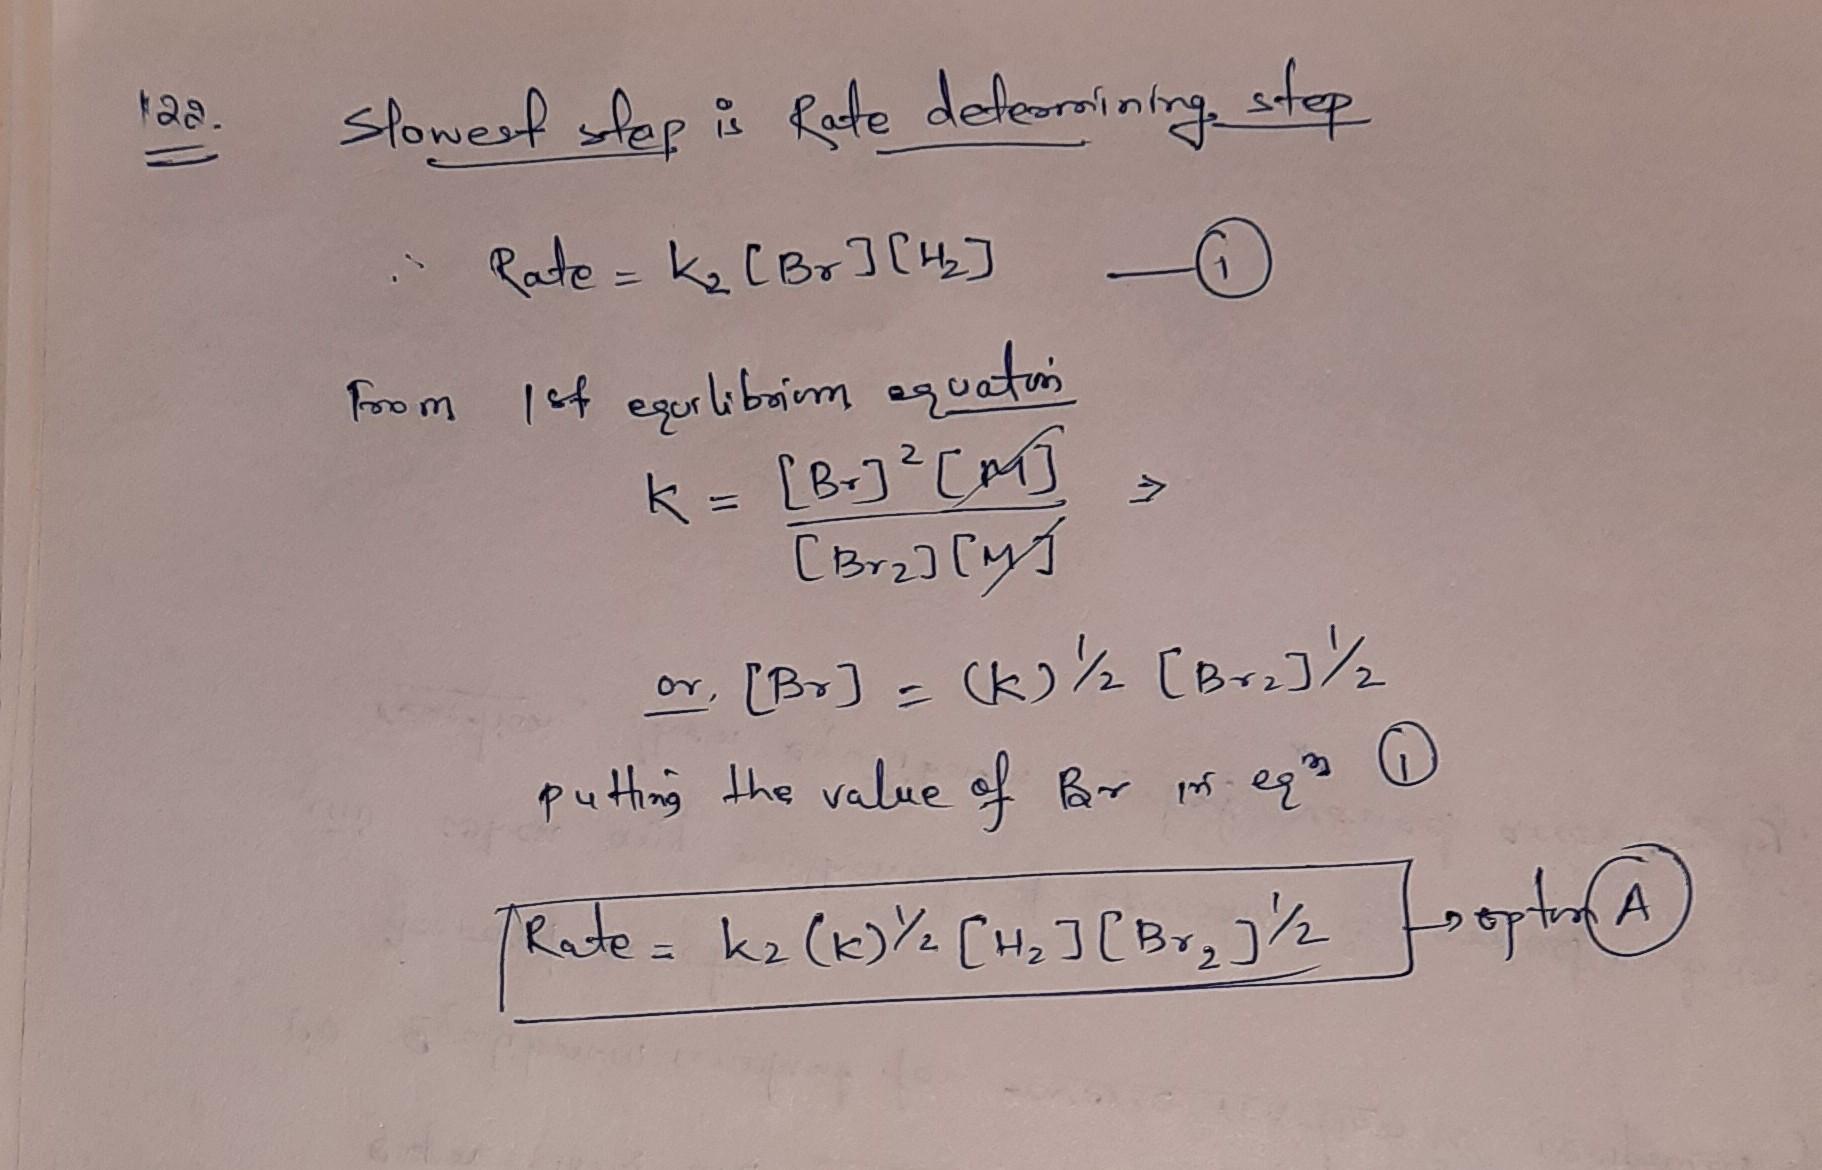 122. Slowest step is Rate determining step
∴ Rate = K₂ [Br] [H₂] — (i)
From 1st equilibrium equation
K = [Br]² [M] ⇒
[Br₂] [M]
or, [Br] = (K)½ [Br₂]½
putting the value of Br in eqn (i)
Rate = k₂ (K)½ [H₂] [Br₂]½ → option (A)